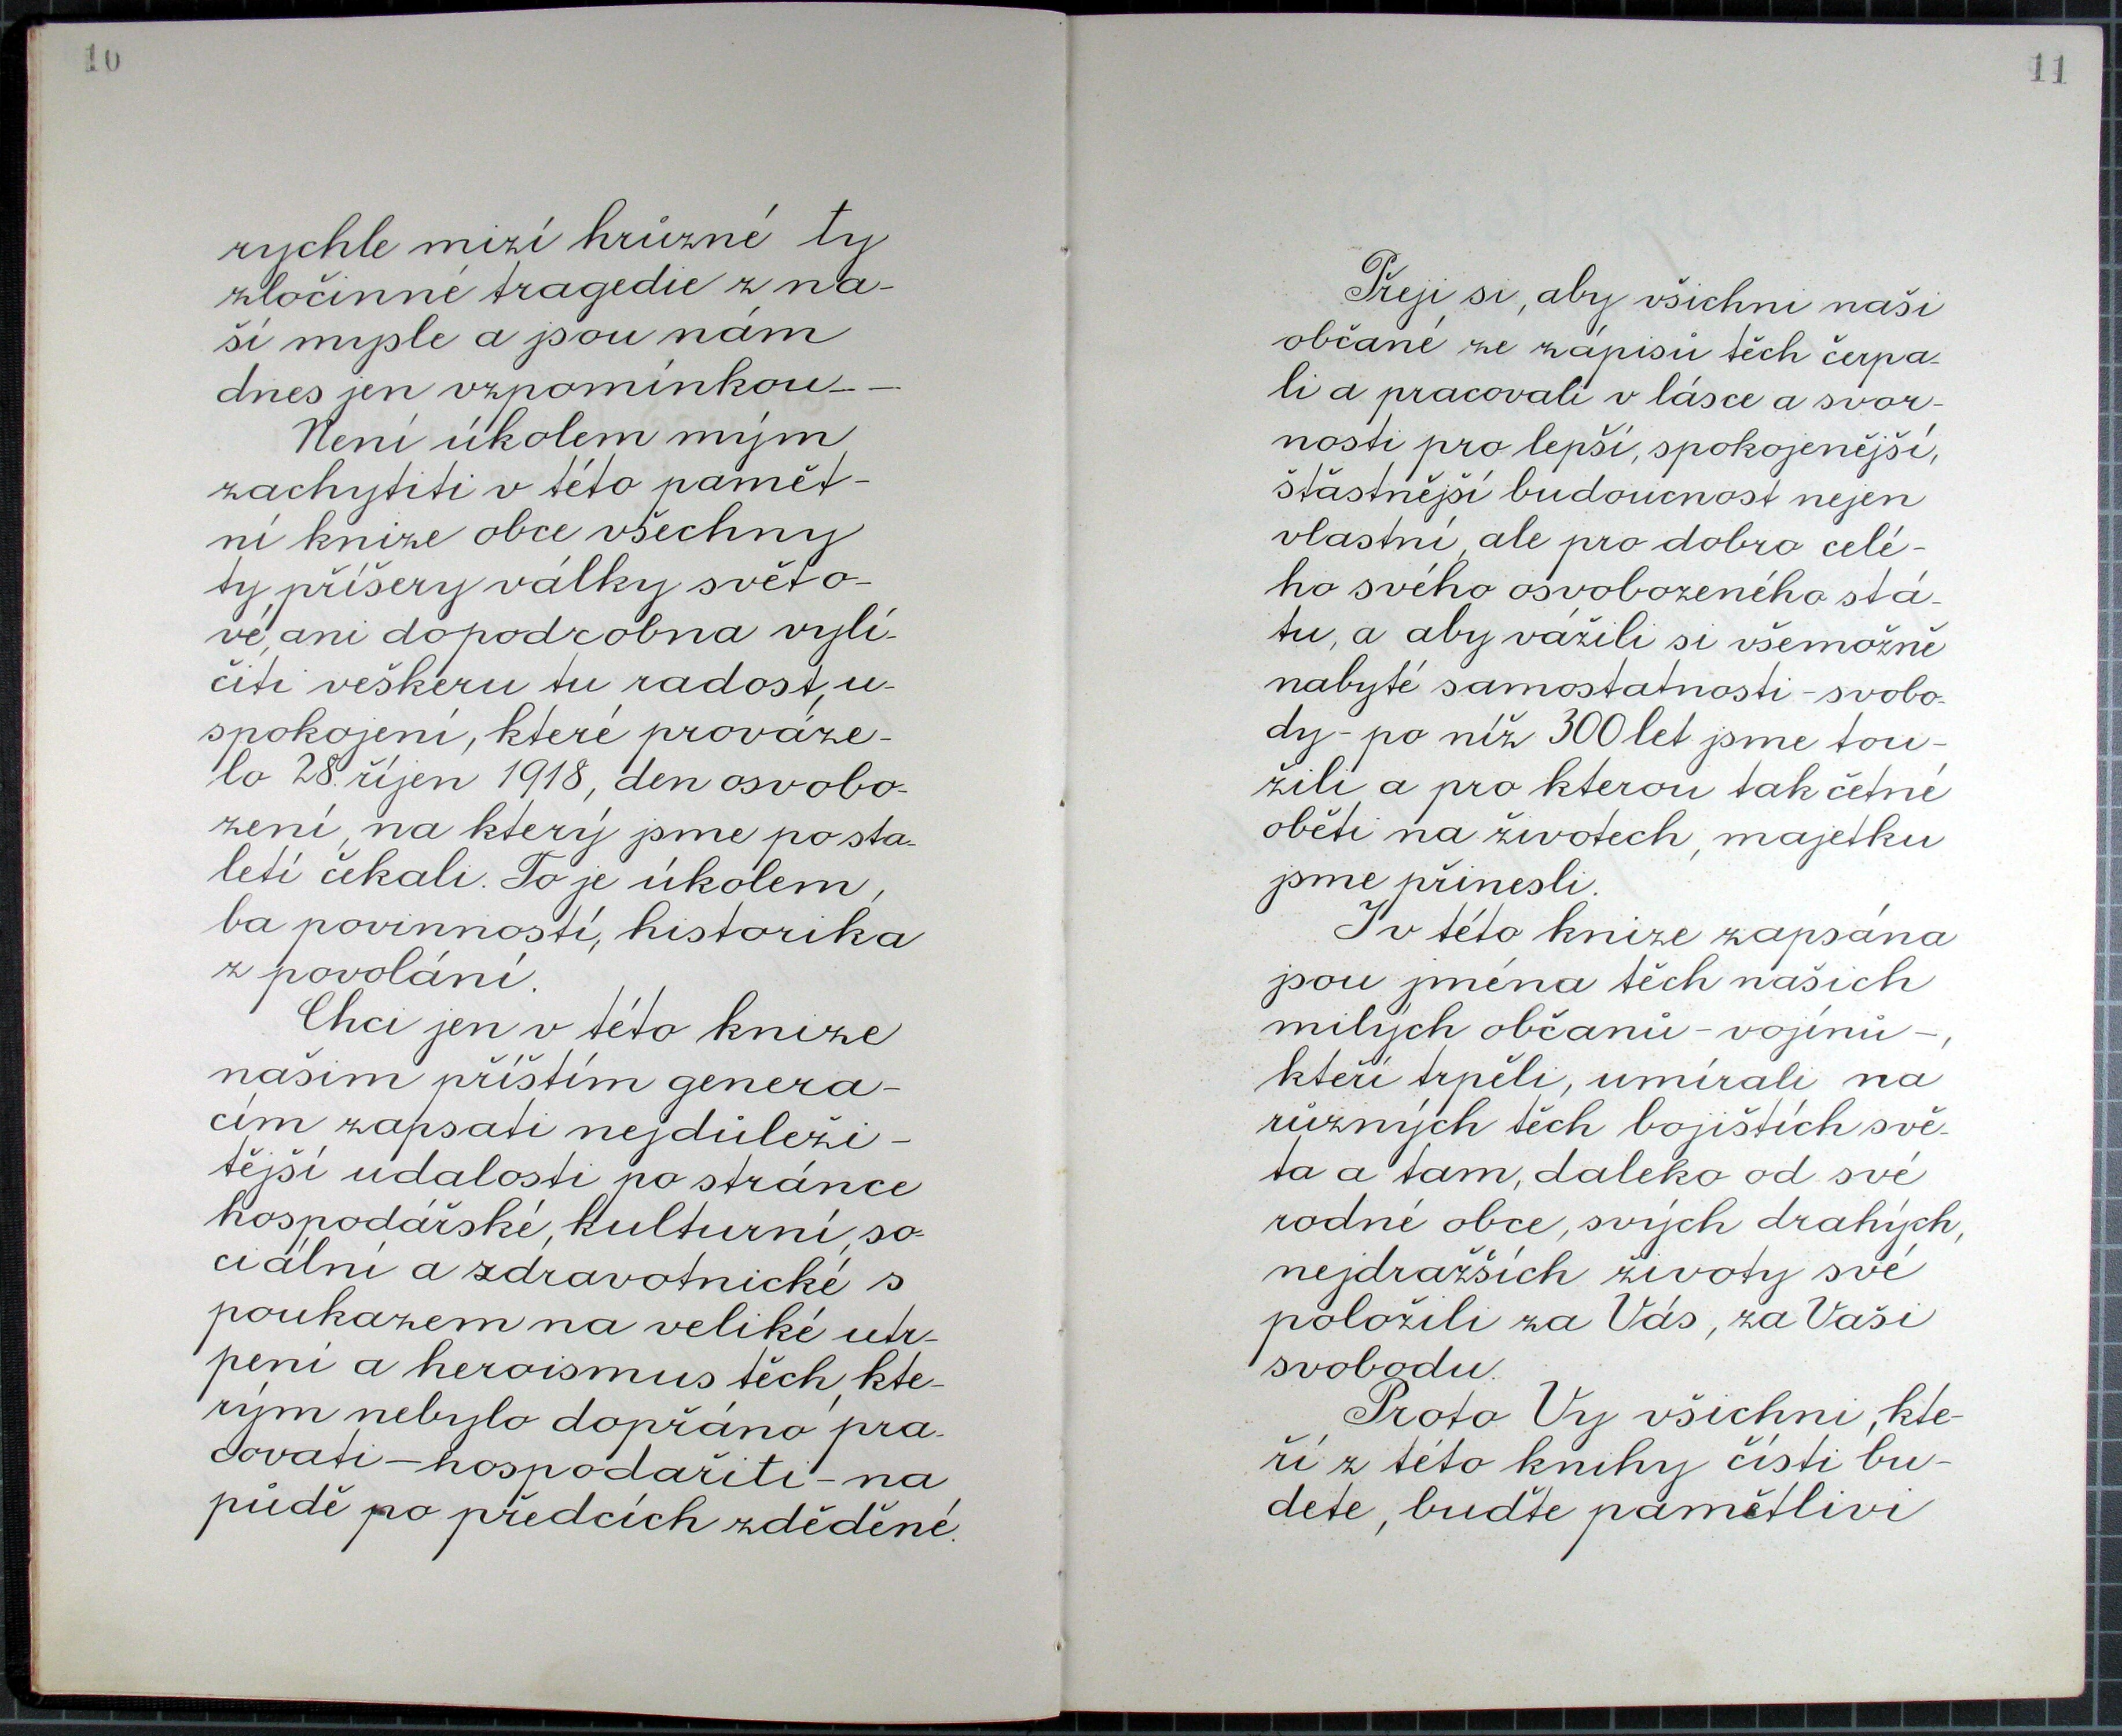 10
rychle mizí hrůzné ty
zločinné tragedie z na-
ší mysle a jsou nám
dnes jen vzpomínkou - -
Není úkolem mým
zachytiti v této pamět-
ní knize obce všechny
ty příšery války světo-
vé, ani dopodrobna vylí-
čiti veškeru tu radost, u-
spokojení, které prováze-
lo 28. říjen 1918, den osvobo-
zení, na který jsme po sta-
letí čekali. To je úkolem,
ba povinností, historika
z povolání.
Chci jen v této knize
našim příštím genera-
cím zapsati nejdůleži-
tější udalosti po stránce
hospodářské, kulturní, so-
ciální a zdravotnické s
poukazem na veliké utr-
pení a heroismus těch, kte-
rým nebylo dopřáno pra-
covati - hospodařiti - na
půdě po předcích zděděné.
11
Přeji si, aby všichni naši
občané ze zápisů těch čerpa-
li a pracovali v lásce a svor-
nosti pro lepší, spokojenější,
šťastnější budoucnost nejen
vlastní, ale pro dobro celé-
ho svého osvobozeného stá-
tu, a aby vážili si všemožně
nabyté samostatnosti - svobo-
dy - po níž 300 let jsme tou-
žili a pro kterou tak četné
oběti na životech, majetku
jsme přinesli.
I v této knize zapsána
jsou jména těch našich
milých občanů - vojínů -,
kteří trpěli, umírali na
různých těch bojištích svě-
ta a tam, daleko od své
rodné obce, svých drahých,
nejdražších životy své
položili za Vás, za Vaši
svobodu.
Proto Vy všichni, kte-
ří z této knihy čísti bu-
dete, buďte pamětlivi